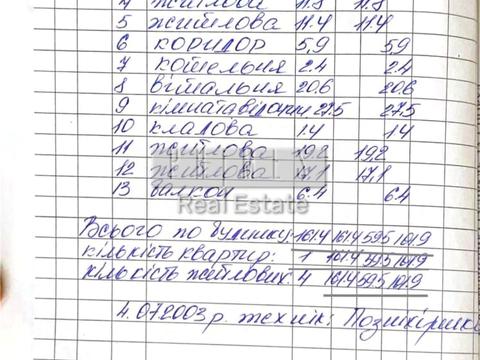 4 житлова 11.8 11.8
5 житлова 11.4 11.4
6 коридор 5,9 5.9
7 котельня 2.4 2.4
8 вітальня 20.6 20.6
9 кімната відпочин 27.5 27.5
10 кладова 1.4 1.4
11 житлова 19.2 19.2
12 житлова 17.1 17.1
13 балкон 6.4 6.4
Real Estate
Всього по будинку: 161.4 161.4 59.5 101.9
кількість квартир: 1 161.4 59.5 101.9
кількість житлових: 4 161.4 59.5 101.9
4.07.2003 р. технік: